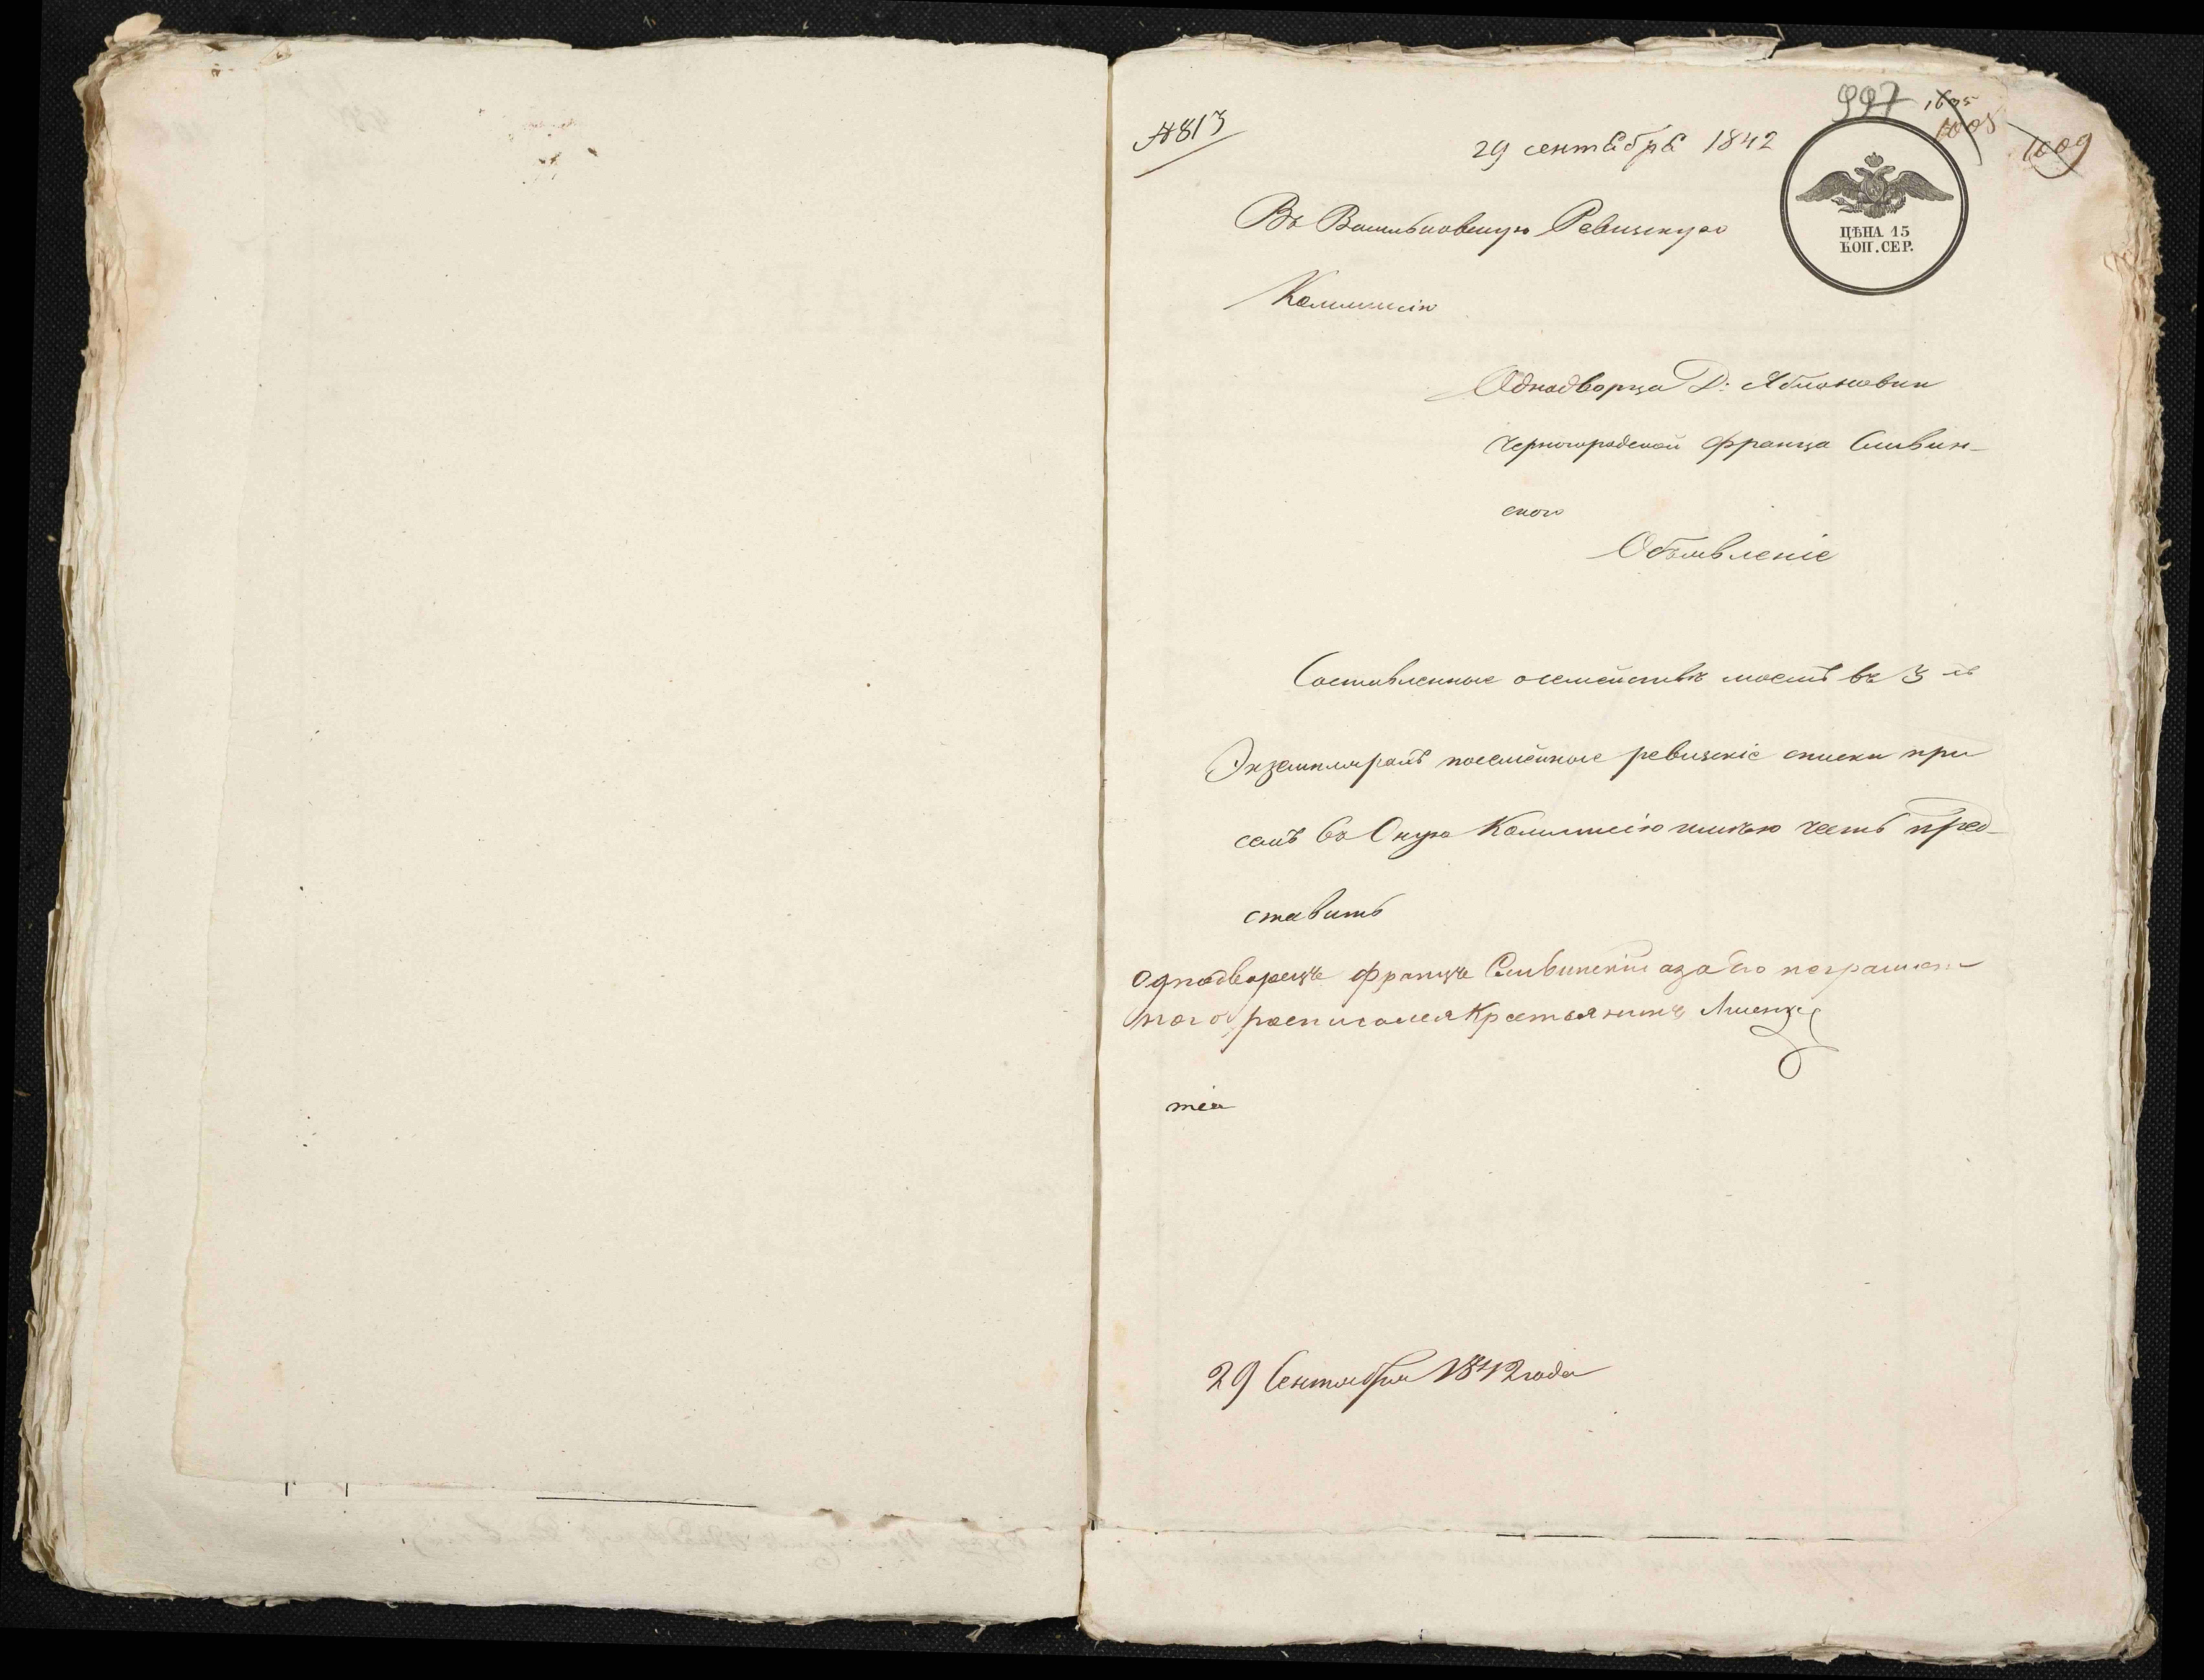 № 813
997
1005
1008
1009
29 сентября 1842
ЦѢНА 15
КОП. СЕР.
Въ Васильковскую Ревизскую
Коммисію
Однодворца Д:
Франца Сливин-
ского
Объявленіе
Составленные о семействѣ моемъ въ 3-хъ
Экземплярахъ посемейные ревизскіе списки при
семъ въ Оную Коммисію имѣю честь пред-
ставить
Однодворецъ Францъ Сливинскій а за его неграмот
ного росписался Крестьянинъ
29 Сентября 1842 года